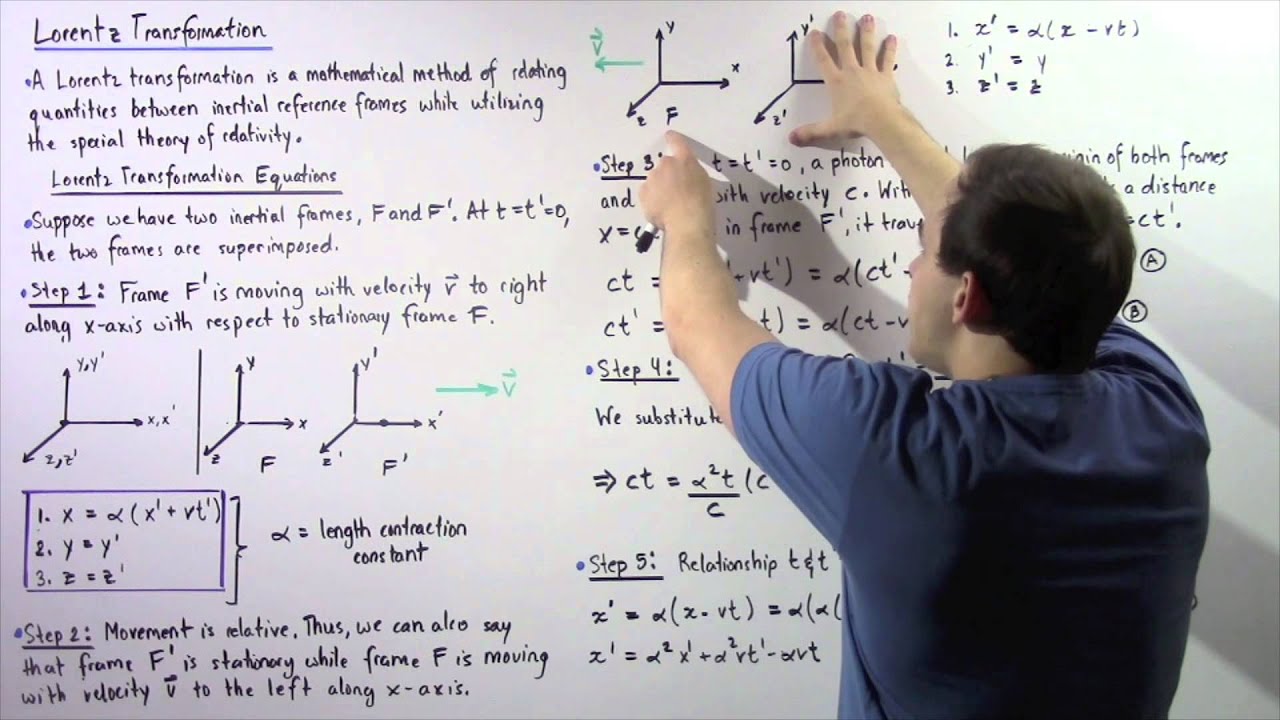 Lorentz Transformation
• A Lorentz transformation is a mathematical method of relating
quantities between inertial reference frames while utilizing
the special theory of relativity.
Lorentz Transformation Equations
• Suppose we have two inertial frames, F and F'. At t=t'=0,
the two frames are superimposed.
• Step 1: Frame F' is moving with velocity v⃗ to right
along x-axis with respect to stationary frame F.
y,y'
x,x'
z,z'
y
x
z
F
y'
x'
z'
F'
v⃗
1. x = α(x'+vt')
2. y = y'
3. z = z'
α = length contraction
constant
• Step 2: Movement is relative. Thus, we can also say
that frame F' is stationary while frame F is moving
with velocity v⃗ to the left along x-axis.
v⃗
y
x
z
F
y'
z'
1. x' = α(x - vt)
2. y' = y
3. z' = z
• Step 3: t=t'=0, a photon of both frames
and with velocity c. a distance
x = in frame F', it = ct'.
ct = + vt') = α(ct' Ⓐ
ct' = t) = α(ct - v Ⓑ
• Step 4:
We substitute
⇒ ct = α²t/c (c
• Step 5: Relationship t & t'
x' = α(x - vt) = α(α(
x' = α²x' + α²vt' - αvt